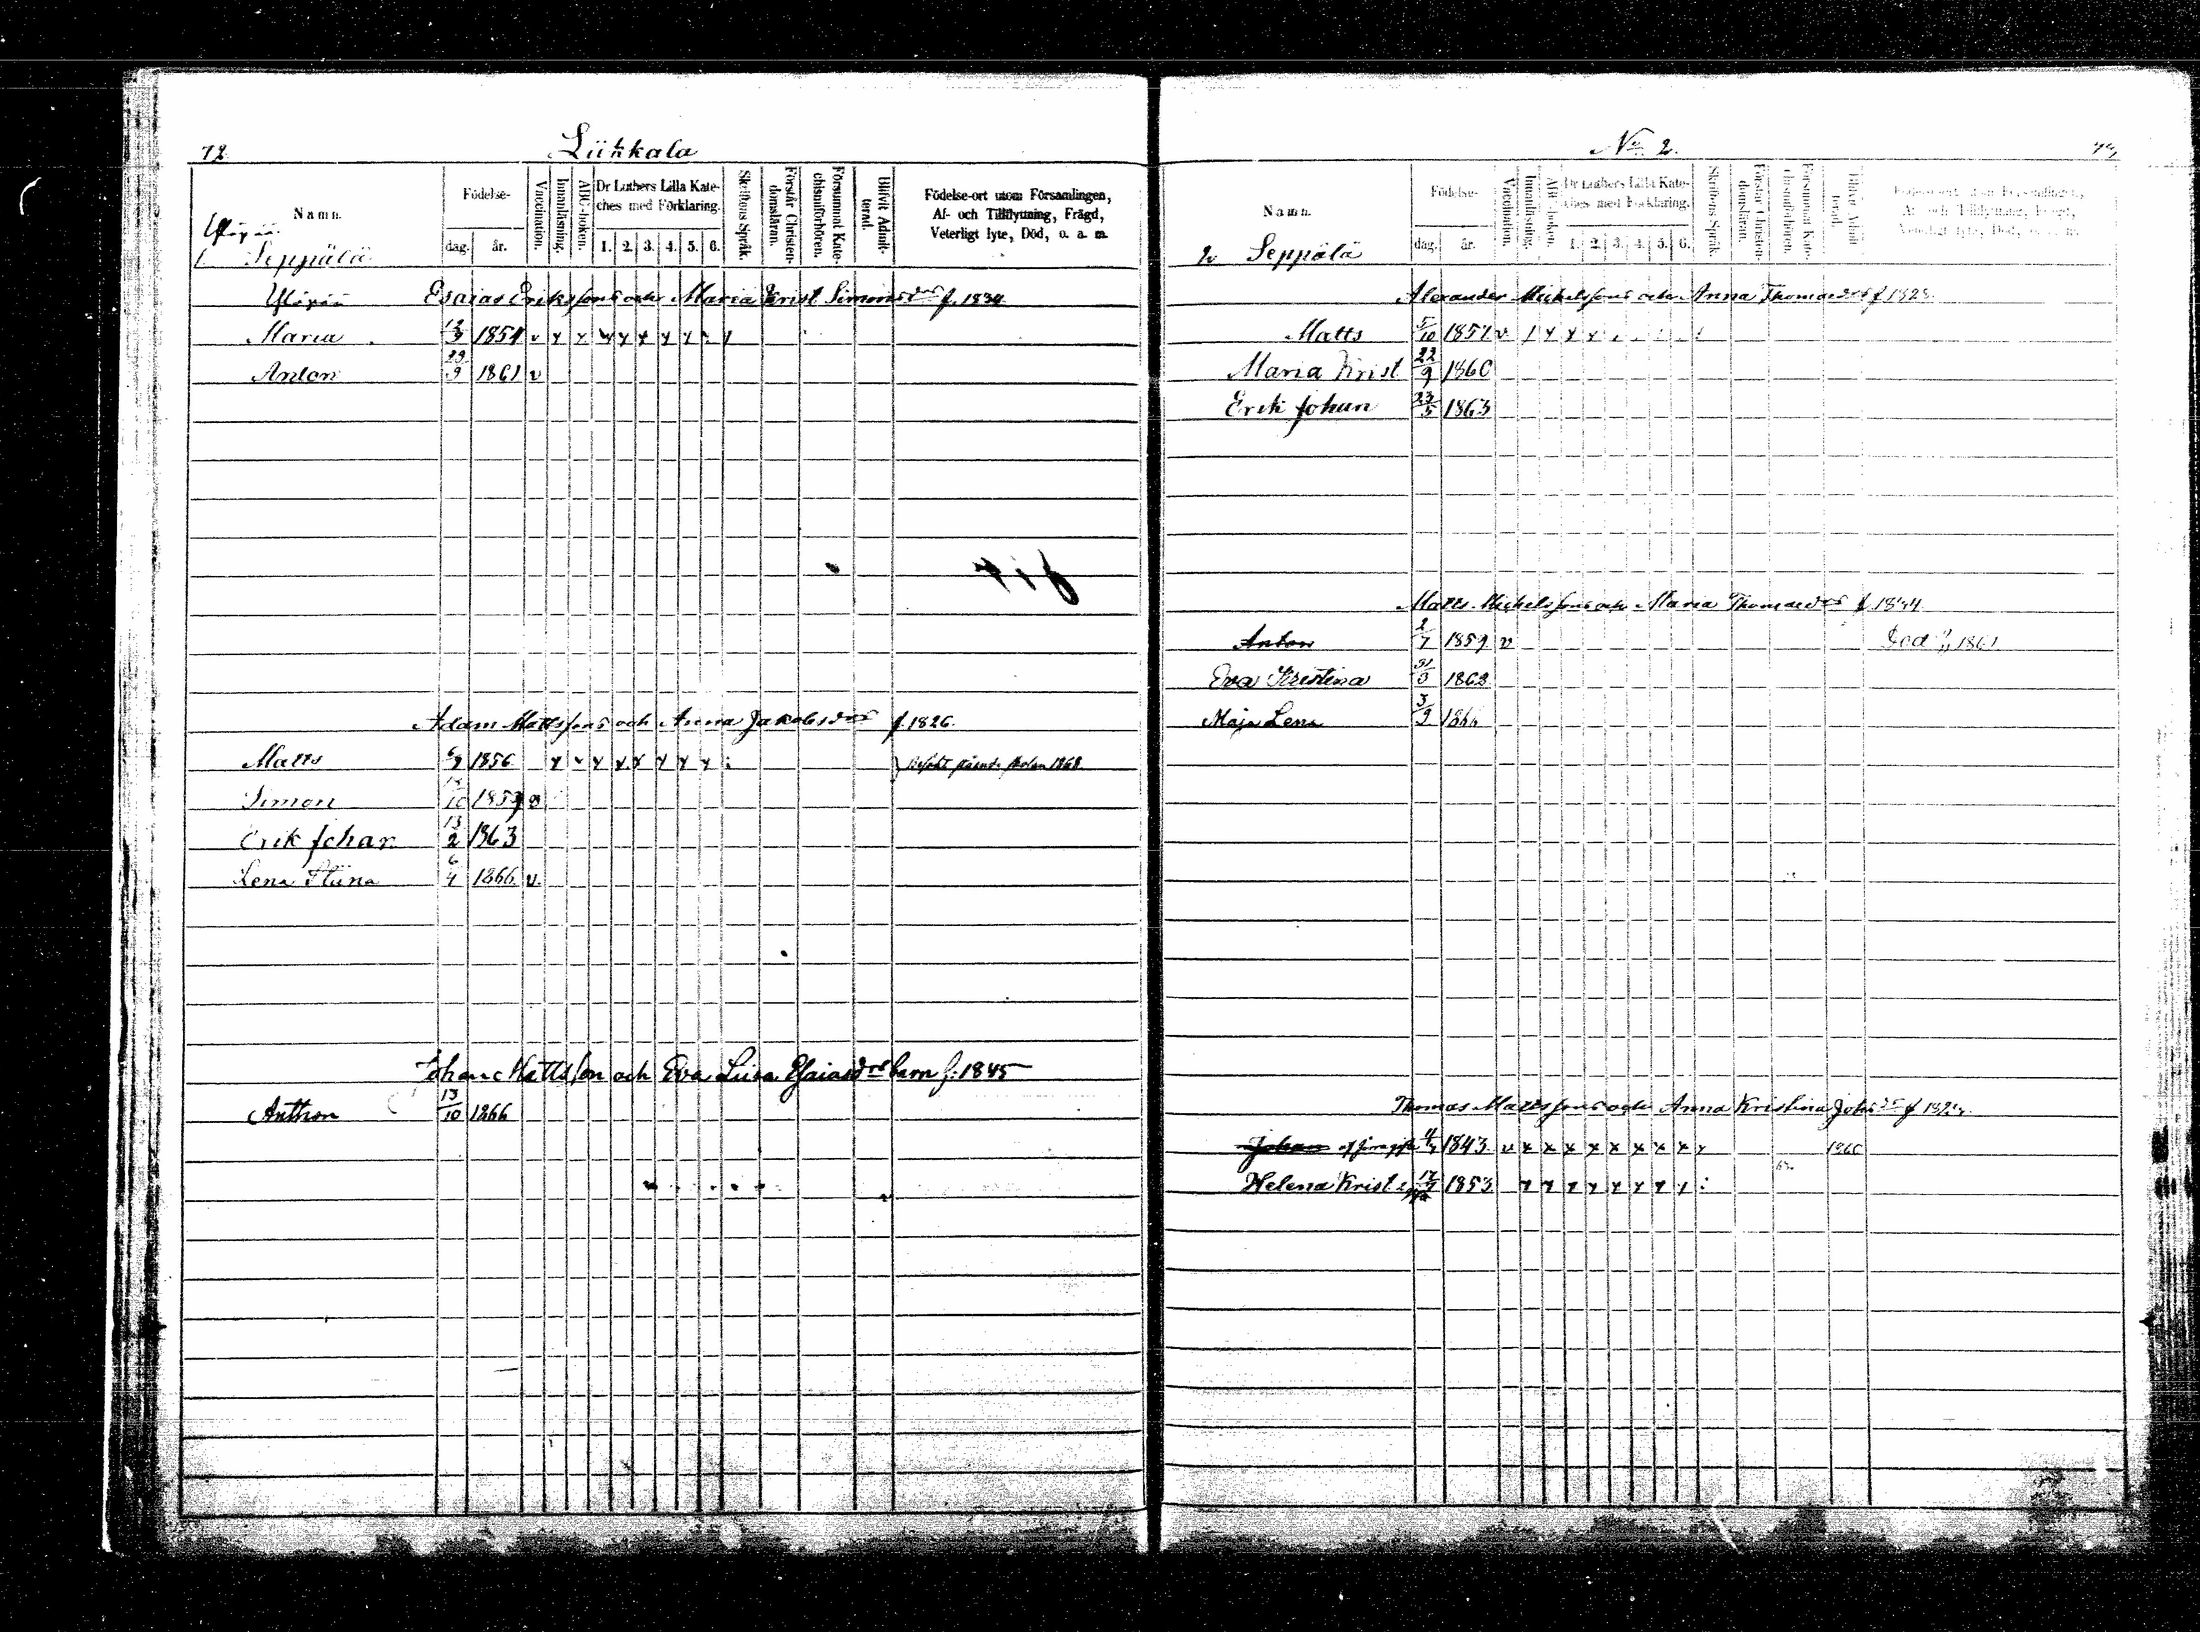 72. Liikkala
Namn.
Födelse-
dag. år.
Vaccination.
Innanläsning.
ABC-boken.
Dr Luthers Lilla Kate-
ches med Förklaring.
1. 2. 3. 4. 5. 6.
Skriftens Språk.
Förstår Christen-
domsläran.
Försummat Kate-
chismiförhören.
Blifvit Admit-
terad.
Födelse-ort utom Församlingen,
Af- och Tillflyttning, Frägd,
Veterligt lyte, Död, o. a. m.
Seppälä
Esaias Erikssons och Maria Krist Simonsdrs f. 1834
Maria 1854 v x x x x x x x
Anton 29/9 1861 v
Adam Mattssons och Anna Jakobsdrs f 1826.
Matts 1856 x x x x x x x x 1868.
Simon 1859 v
Erik Johan 13/2 1863
Lena Stina 6/4 1866 v
Johan Mattsson och Eva Lisa Esaiasdrs barn f: 1845
Anthon 13/10 1866
No 2.
Namn.
Födelse-
dag. år.
Vaccination.
Innanläsning.
ABC-boken.
Dr Luthers Lilla Kate-
ches med Förklaring.
1. 2. 3. 4. 5. 6.
Skriftens Språk.
Förstår Christen-
domsläran.
Försummat Kate-
chismiförhören.
Blifvit Admit-
terad.
Födelse-ort utom Församlingen,
Af- och Tillflyttning, Frägd,
Veterligt lyte, Död, o. a. m.
2. Seppälä
Alexander Michelssons och Anna Thomasdrs f 1828.
Matts 5/10 1857 v
Maria Krist 22/9 1860
Erik Johan 23/5 1863
Matts Michelssons och Maria Thomasdrs f 1834
Anton 2/7 1859 v Död 1861
Eva Kristina 31/3 1862
Maja Lena 3/9 1866
Thomas Mattssons och Anna Kristina Johsdr f
Johan 1843 v x x x x x x x x 1860
Helena Krist 1853 x x x x x x x